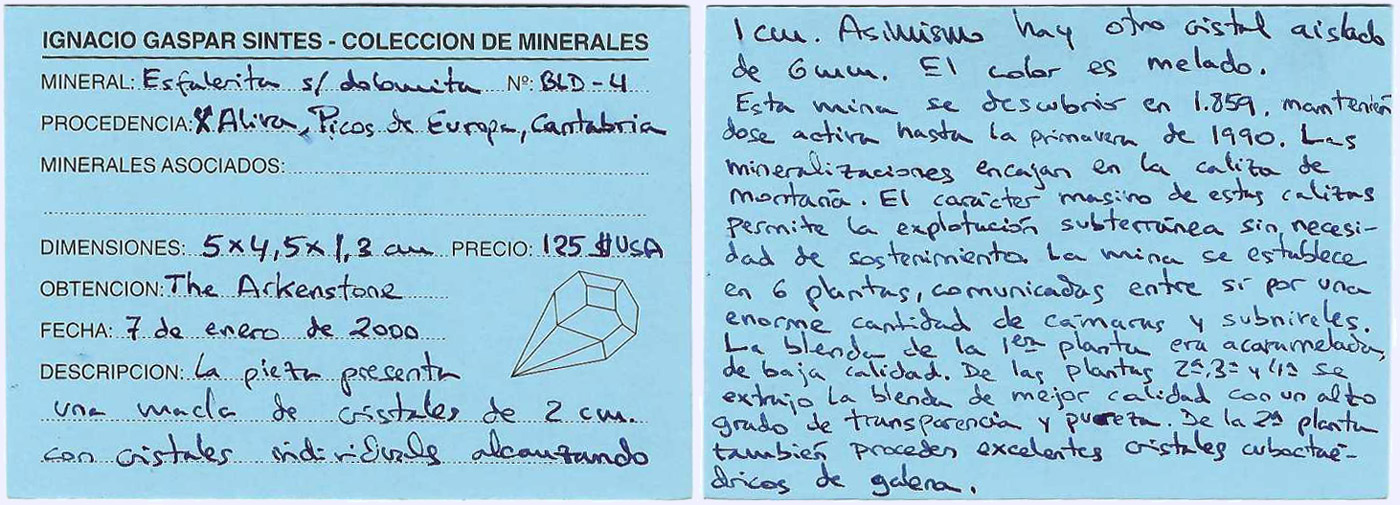 IGNACIO GASPAR SINTES - COLECCION DE MINERALES
MINERAL: Esfalerita s/ dolomita Nº: BLD-4
PROCEDENCIA: Aliva, Picos de Europa, Cantabria
MINERALES ASOCIADOS:
DIMENSIONES: 5x4,5x1,3 cm PRECIO: 125 $USA
OBTENCION: The Arkenstone
FECHA: 7 de enero de 2000
DESCRIPCION: La pieza presenta
una macla de cristales de 2 cm.
con cristales individuals alcanzando
1 cm. Asimismo hay otro cristal aislado
de 6mm. El color es melado.
Esta mina se descubrió en 1.859, mantenién
dose activa hasta la primavera de 1990. Las
mineralizaciones encajan en la caliza de
montaña. El carácter masivo de estas calizas
permite la explotación subterránea sin necesi-
dad de sostenimiento. La mina se establece
en 6 plantas, comunicadas entre sí por una
enorme cantidad de cámaras y subniveles.
La blenda de la 1era planta era acaramelada,
de baja calidad. De las plantas 2ª, 3ª y 4ª se
extrajo la blenda de mejor calidad con un alto
grado de transparencia y pureza. De la 2ª planta
también proceden excelentes cristales cuboctaé-
dricos de galena.